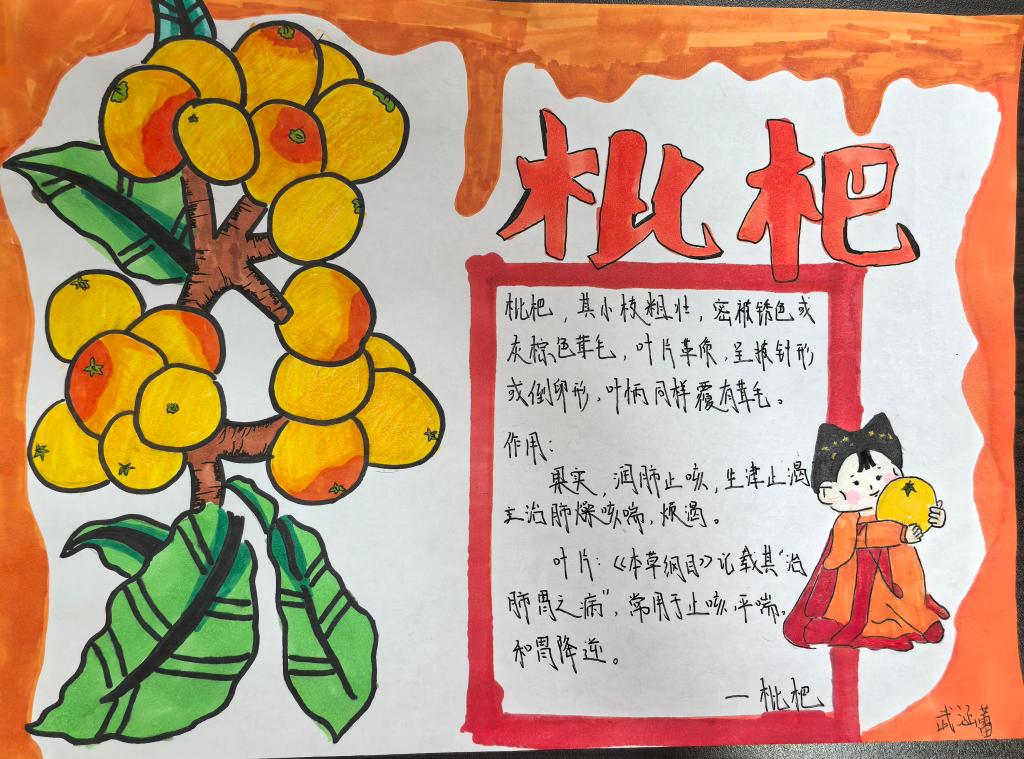 枇杷
枇杷，其小枝粗壮，密被锈色或
灰棕色茸毛，叶片革质，呈披针形
或倒卵形，叶柄同样覆有茸毛。
作用：
果实，润肺止咳，生津止渴
主治肺燥咳喘，烦渴。
叶片：《本草纲目》记载其“治
肺胃之病”，常用于止咳平喘。
和胃降逆。
—枇杷
武涵蕾